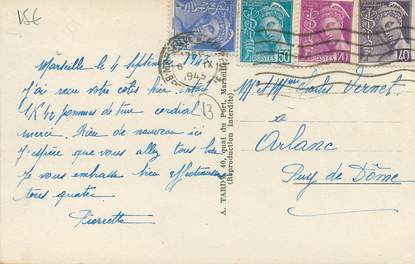 15€
Marseille le 4 septembre 1942
j'ai reçu votre colis hier
1 K 12 pommes de terre cordial
merci. Rien de nouveau ici
j'espère que vous allez tous bien
je vous embrasse bien affectueusement
tous quatre
Pierrette
13
A. TARDY, 40, quai du Port, Marseille
(Reproduction interdite)
POSTES
50
70
40
Mr et Mme Vernet
à
Arlanc
Puy de Dôme